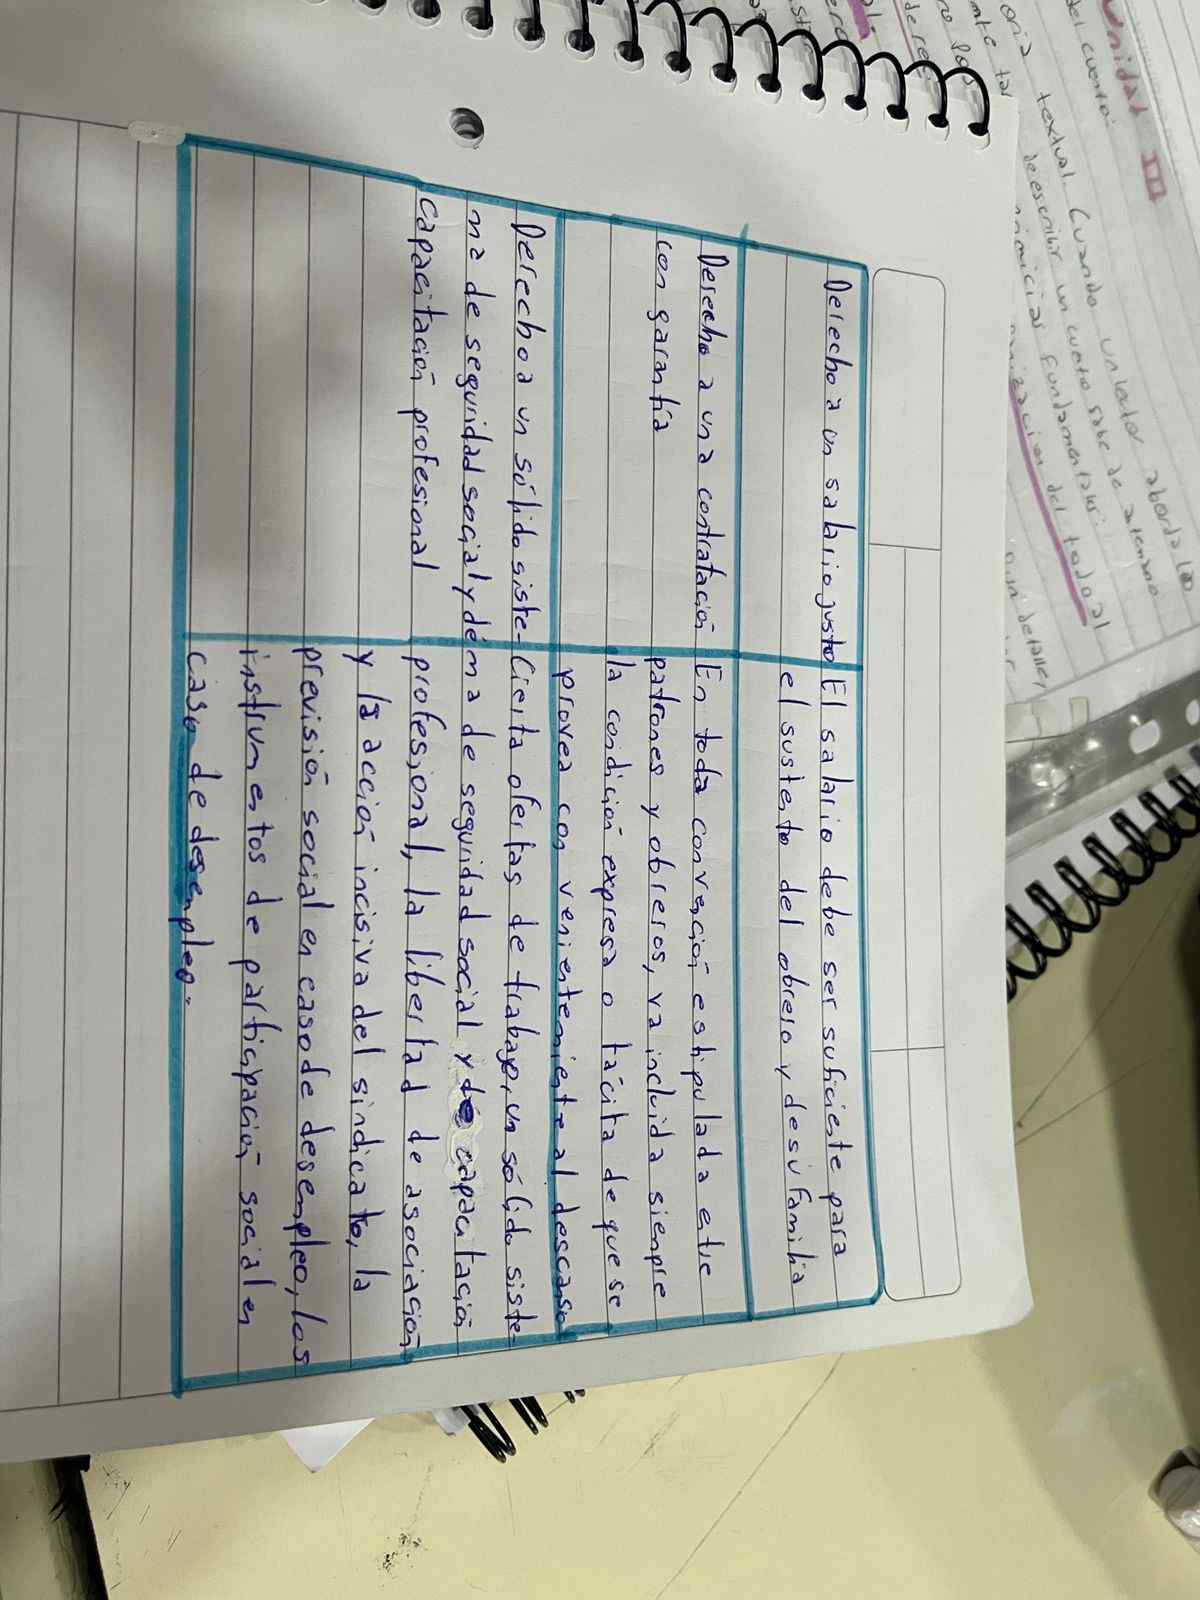 Derecho a un salario justo
El salario debe ser suficiente para
el sustento del obrero y desu Familia
Derecho a una contratación
con garantía
En toda convención estipulada entre
patrones y obreros, va incluida siempre
la condición expresa o tácita de que se
provea con venientemiente al descaso
Derecho a un sólido siste-
ma de seguridad social y de
capacitación profesional
Cierta ofertas de trabajo, un sólido siste-
ma de seguridad social y de capacitación
profesional, la libertad de asociación
y la acción incisiva del sindicato, la
previsión social en caso de desempleo, los
instrumentos de participación social en
caso de desempleo.
Unidad III
del cuento:
textual. Cuando un lector aborda la
de escribir un cuento sabe de antemano
fundamentales:
del todo al